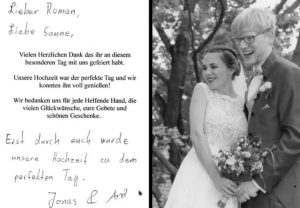 Lieber Roman,
Liebe Sanne,
Vielen Herzlichen Dank das ihr an diesem
besonderen Tag mit uns gefeiert habt.
Unsere Hochzeit war der perfekte Tag und wir
konnten ihn voll genießen!
Wir bedanken uns für jede Helfende Hand, die
vielen Glückwünsche, eure Gebete und
schönen Geschenke.
Erst durch euch wurde
unsere Hochzeit zu dem
perfekten Tag.
Jonas &